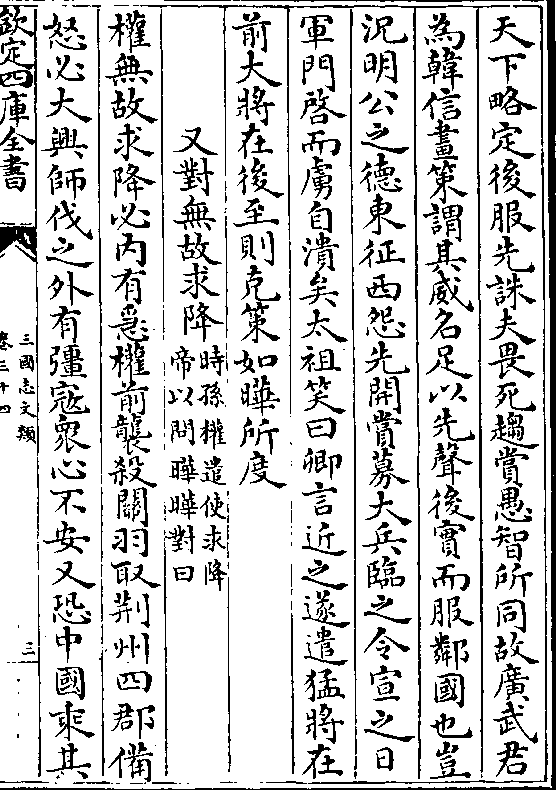 天下略定後服先誅夫畏死趨賞愚智所同故廣武君
為韓信畫策謂其威名足以先聲後實而服鄰國也豈
況明公之德東征西怨先開賞募大兵臨之令宣之日
軍門啓而虜自潰矣太祖笑曰卿言近之遂遣猛將在
前大將在後至則克策如曄所度
又對無故求降時孫權遣使求降帝以問曄曄對曰
權無故求降必內有急權前襲殺關羽取荆州四郡備
怒必大興師伐之外有彊寇衆心不安又恐中國乘其
欽定四庫全書
三國志文類
卷三十四
三